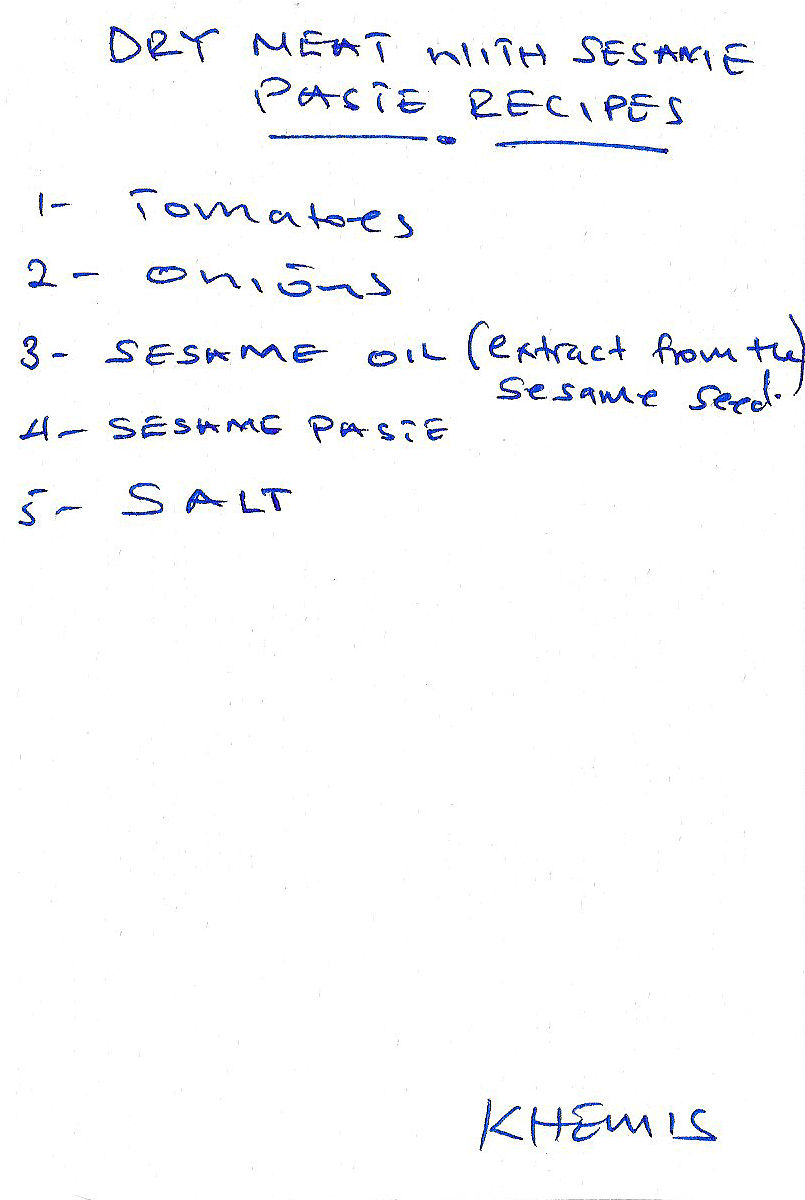 DRY MEAT WITH SESAME
PASTE RECIPES
1- Tomatoes
2- onions
3- SESAME OIL (extract from the
sesame seed.)
4- SESAME PASTE
5- SALT
KHEMIS